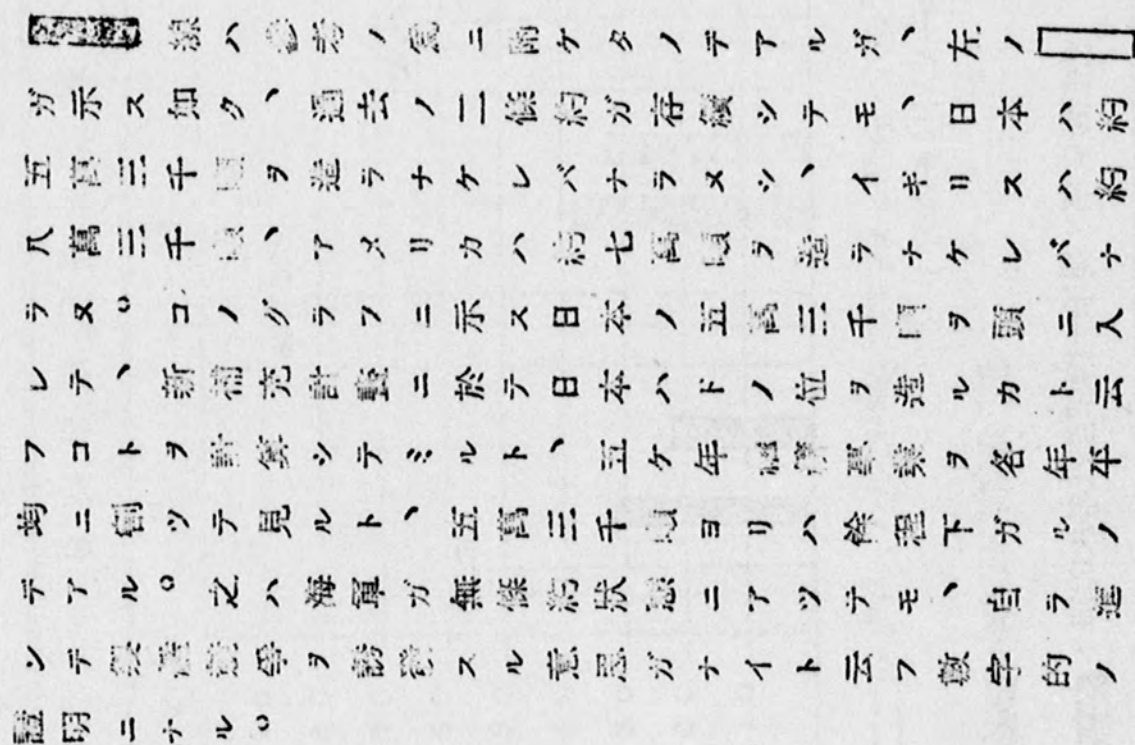 線ハ参考ノ爲ニ附ケタノデアルガ、左ノ
ガ示ス如ク、過去ノ二條約ガ存續シテモ、日本ハ約
五萬三千噸ヲ造ラナケレバナラヌシ、イギリスハ約
八萬三千噸、アメリカハ約七萬噸ヲ造ラナケレバナ
ラヌ。コノグラフニ示ス日本ノ五萬三千噸ヲ頭ニ入
レテ、新補充計畫ニ於テ日本ハドノ位ヲ造ルカト云
フコトヲ計算シテミルト、五ケ年繼續事業ヲ各年平
均ニ割ツテ見ルト、五萬三千噸ヨリハ餘程下ガルノ
デアル。之ハ海軍ガ無條約狀態ニアツテモ、自ラ進
ンデ製艦競爭ヲ誘發スル意思ガナイト云フ數字的ノ
證明ニナル。